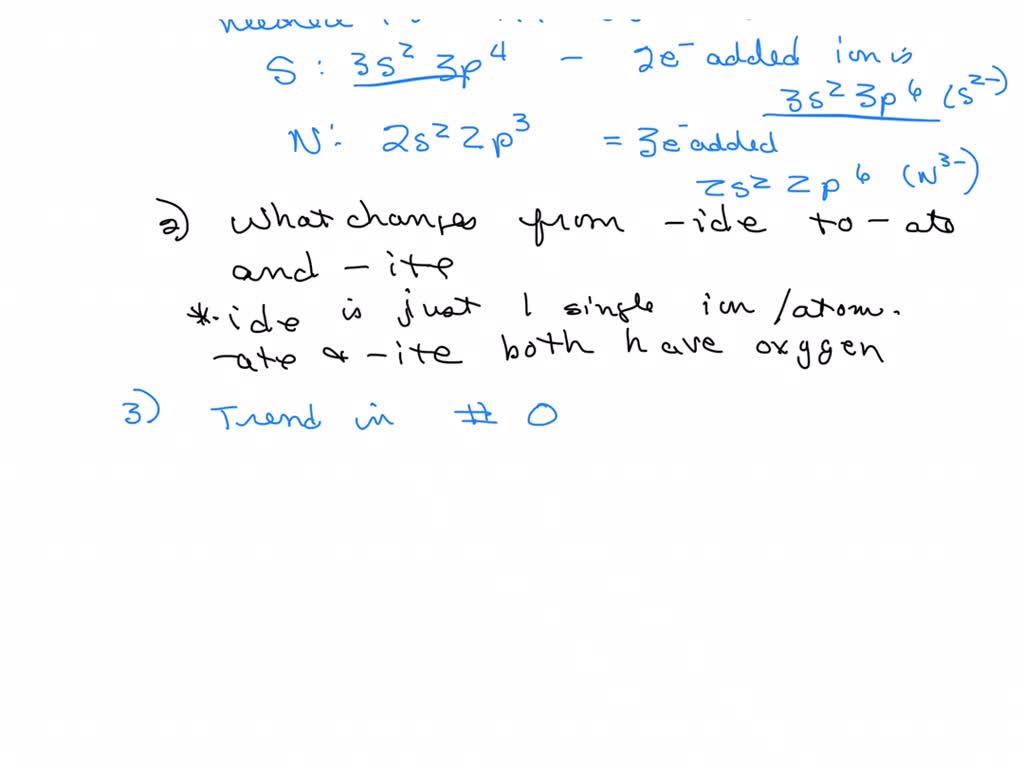 S : 3s² 3p⁴ – 2e⁻ added ion is
3s² 3p⁶ (S²⁻)
N: 2s² 2p³ = 3e⁻ added
2s² 2p⁶ (N³⁻)
2) What changes from -ide to -ate
and -ite
*-ide is just 1 single ion/atom.
-ate & -ite both have oxygen
3) Trend in # O